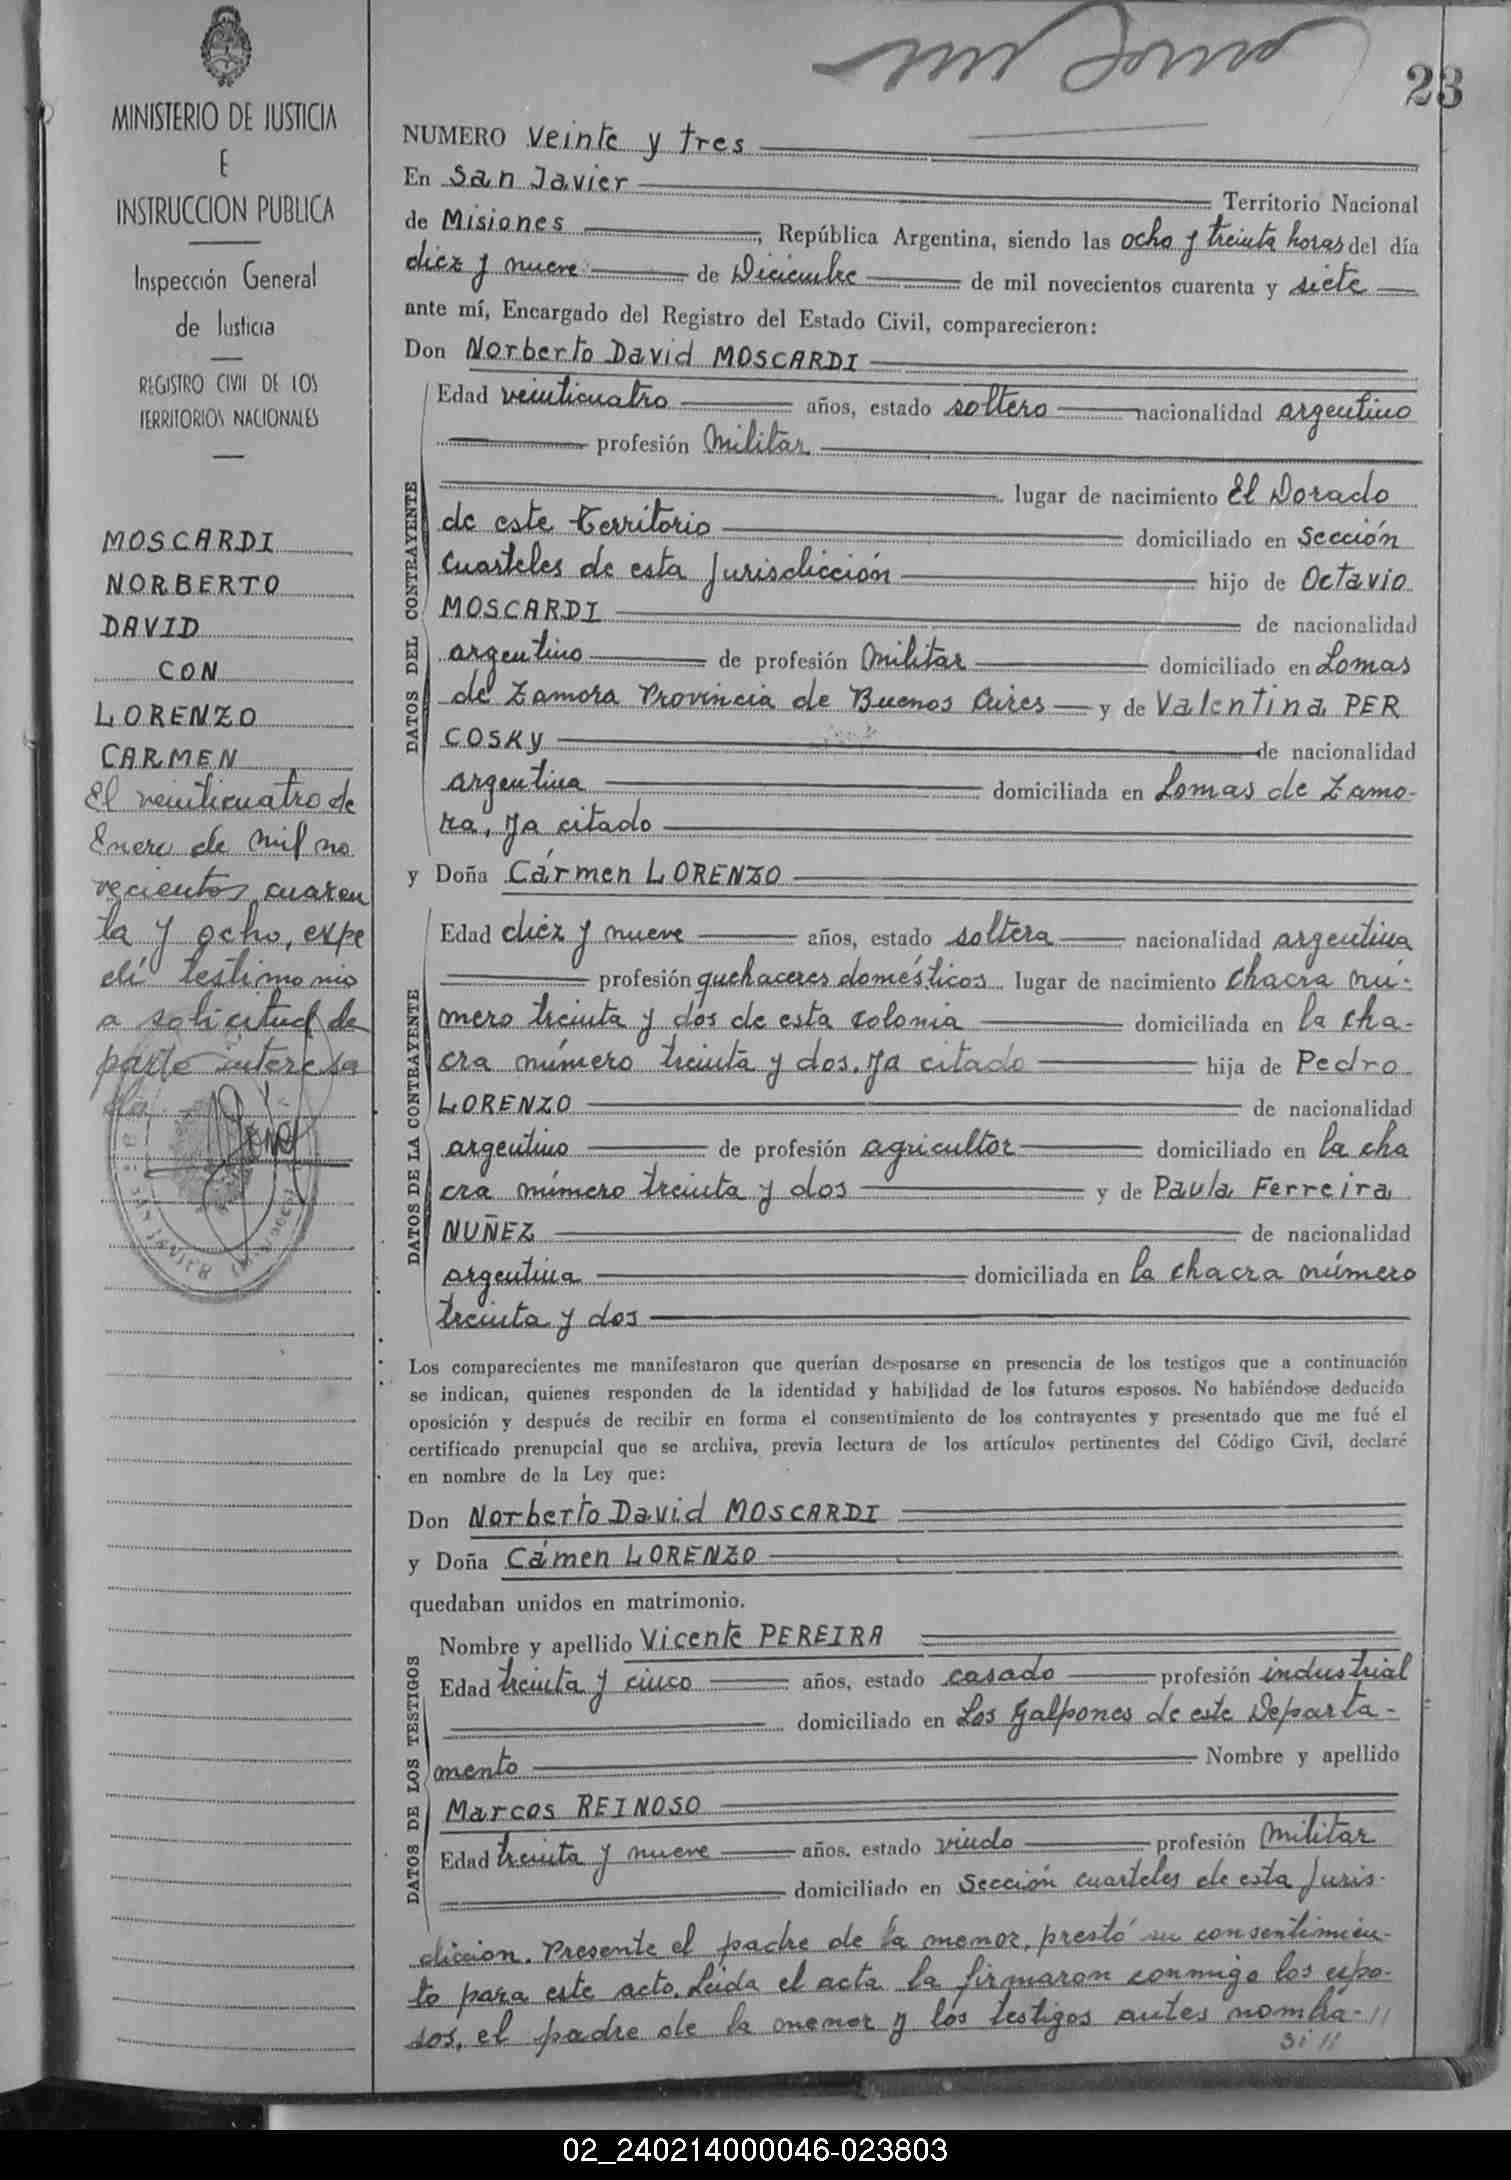 23
MINISTERIO DE JUSTICIA
E
INSTRUCCION PUBLICA
Inspección General
de Justicia
REGISTRO CIVIL DE LOS
TERRITORIOS NACIONALES
MOSCARDI
NORBERTO
DAVID
CON
LORENZO
CARMEN
El veinticuatro de
Enero de mil no
vecientos cuaren
ta y ocho, expe
dí testimonio
a solicitud de
parte interesa
da
NUMERO Veinte y tres
En San Javier Territorio Nacional
de Misiones, República Argentina, siendo las ocho y treinta horas del día
diez y nueve de Diciembre de mil novecientos cuarenta y siete
ante mí, Encargado del Registro del Estado Civil, comparecieron:
Don Norberto David MOSCARDI
DATOS DEL CONTRAYENTE
Edad veinticuatro años, estado soltero nacionalidad argentino
profesión Militar
lugar de nacimiento El Dorado
de este Territorio domiciliado en Sección
Cuarteles de esta Jurisdicción hijo de Octavio
MOSCARDI de nacionalidad
argentino de profesión Militar domiciliado en Lomas
de Zamora Provincia de Buenos Aires y de Valentina PER
COSKY de nacionalidad
argentina domiciliada en Lomas de Zamo-
ra, ya citado
y Doña Cármen LORENZO
DATOS DE LA CONTRAYENTE
Edad diez y nueve años, estado soltera nacionalidad argentina
profesión quehaceres domésticos lugar de nacimiento chacra nú-
mero treinta y dos de esta colonia domiciliada en la cha-
cra número treinta y dos, ya citado hija de Pedro
LORENZO de nacionalidad
argentino de profesión agricultor domiciliado en la cha
cra número treinta y dos y de Paula Ferreira
NUÑEZ de nacionalidad
argentina domiciliada en la chacra número
treinta y dos
Los comparecientes me manifestaron que querían desposarse en presencia de los testigos que a continuación
se indican, quienes responden de la identidad y habilidad de los futuros esposos. No habiéndose deducido
oposición y después de recibir en forma el consentimiento de los contrayentes y presentado que me fué el
certificado prenupcial que se archiva, previa lectura de los artículos pertinentes del Código Civil, declaré
en nombre de la Ley que:
Don Norberto David MOSCARDI
y Doña Cámen LORENZO
quedaban unidos en matrimonio.
DATOS DE LOS TESTIGOS
Nombre y apellido Vicente PEREIRA
Edad treinta y cinco años, estado casado profesión industrial
domiciliado en Los Galpones de este Departa-
mento Nombre y apellido
Marcos REINOSO
Edad treinta y nueve años. estado viudo profesión Militar
domiciliado en Sección cuarteles de esta Juris-
diccion. Presente el padre de la menor, prestó su consentimien-
to para este acto. Leida el acta la firmaron conmigo los espo-
sos, el padre de la menor y los testigos antes nombra-//
si //
02_240214000046-023803